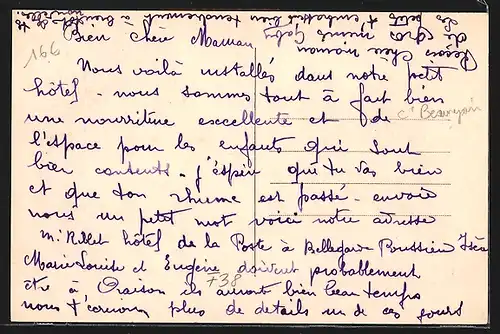 166
Bien chère Maman
Nous voilà installés dans notre petit
hôtel - nous sommes tout à fait bien
une nourriture excellente et de
l'espace pour les enfants qui sont
bien contents - j'espère que tu vas bien
et que ton rhume est passé - envoie
nous un petit mot voici notre adresse
Mr Rillet hôtel de la Poste à Bellegarde Poussieu Isère
Marie Louise et Eugène doivent probablement
être à Oraison ils auront bien beau temps
nous t'écrirons plus de détails un de ces jours
738
Reçois chère maman
de gros
mimi Gaby
t'embrasse bien tendrement